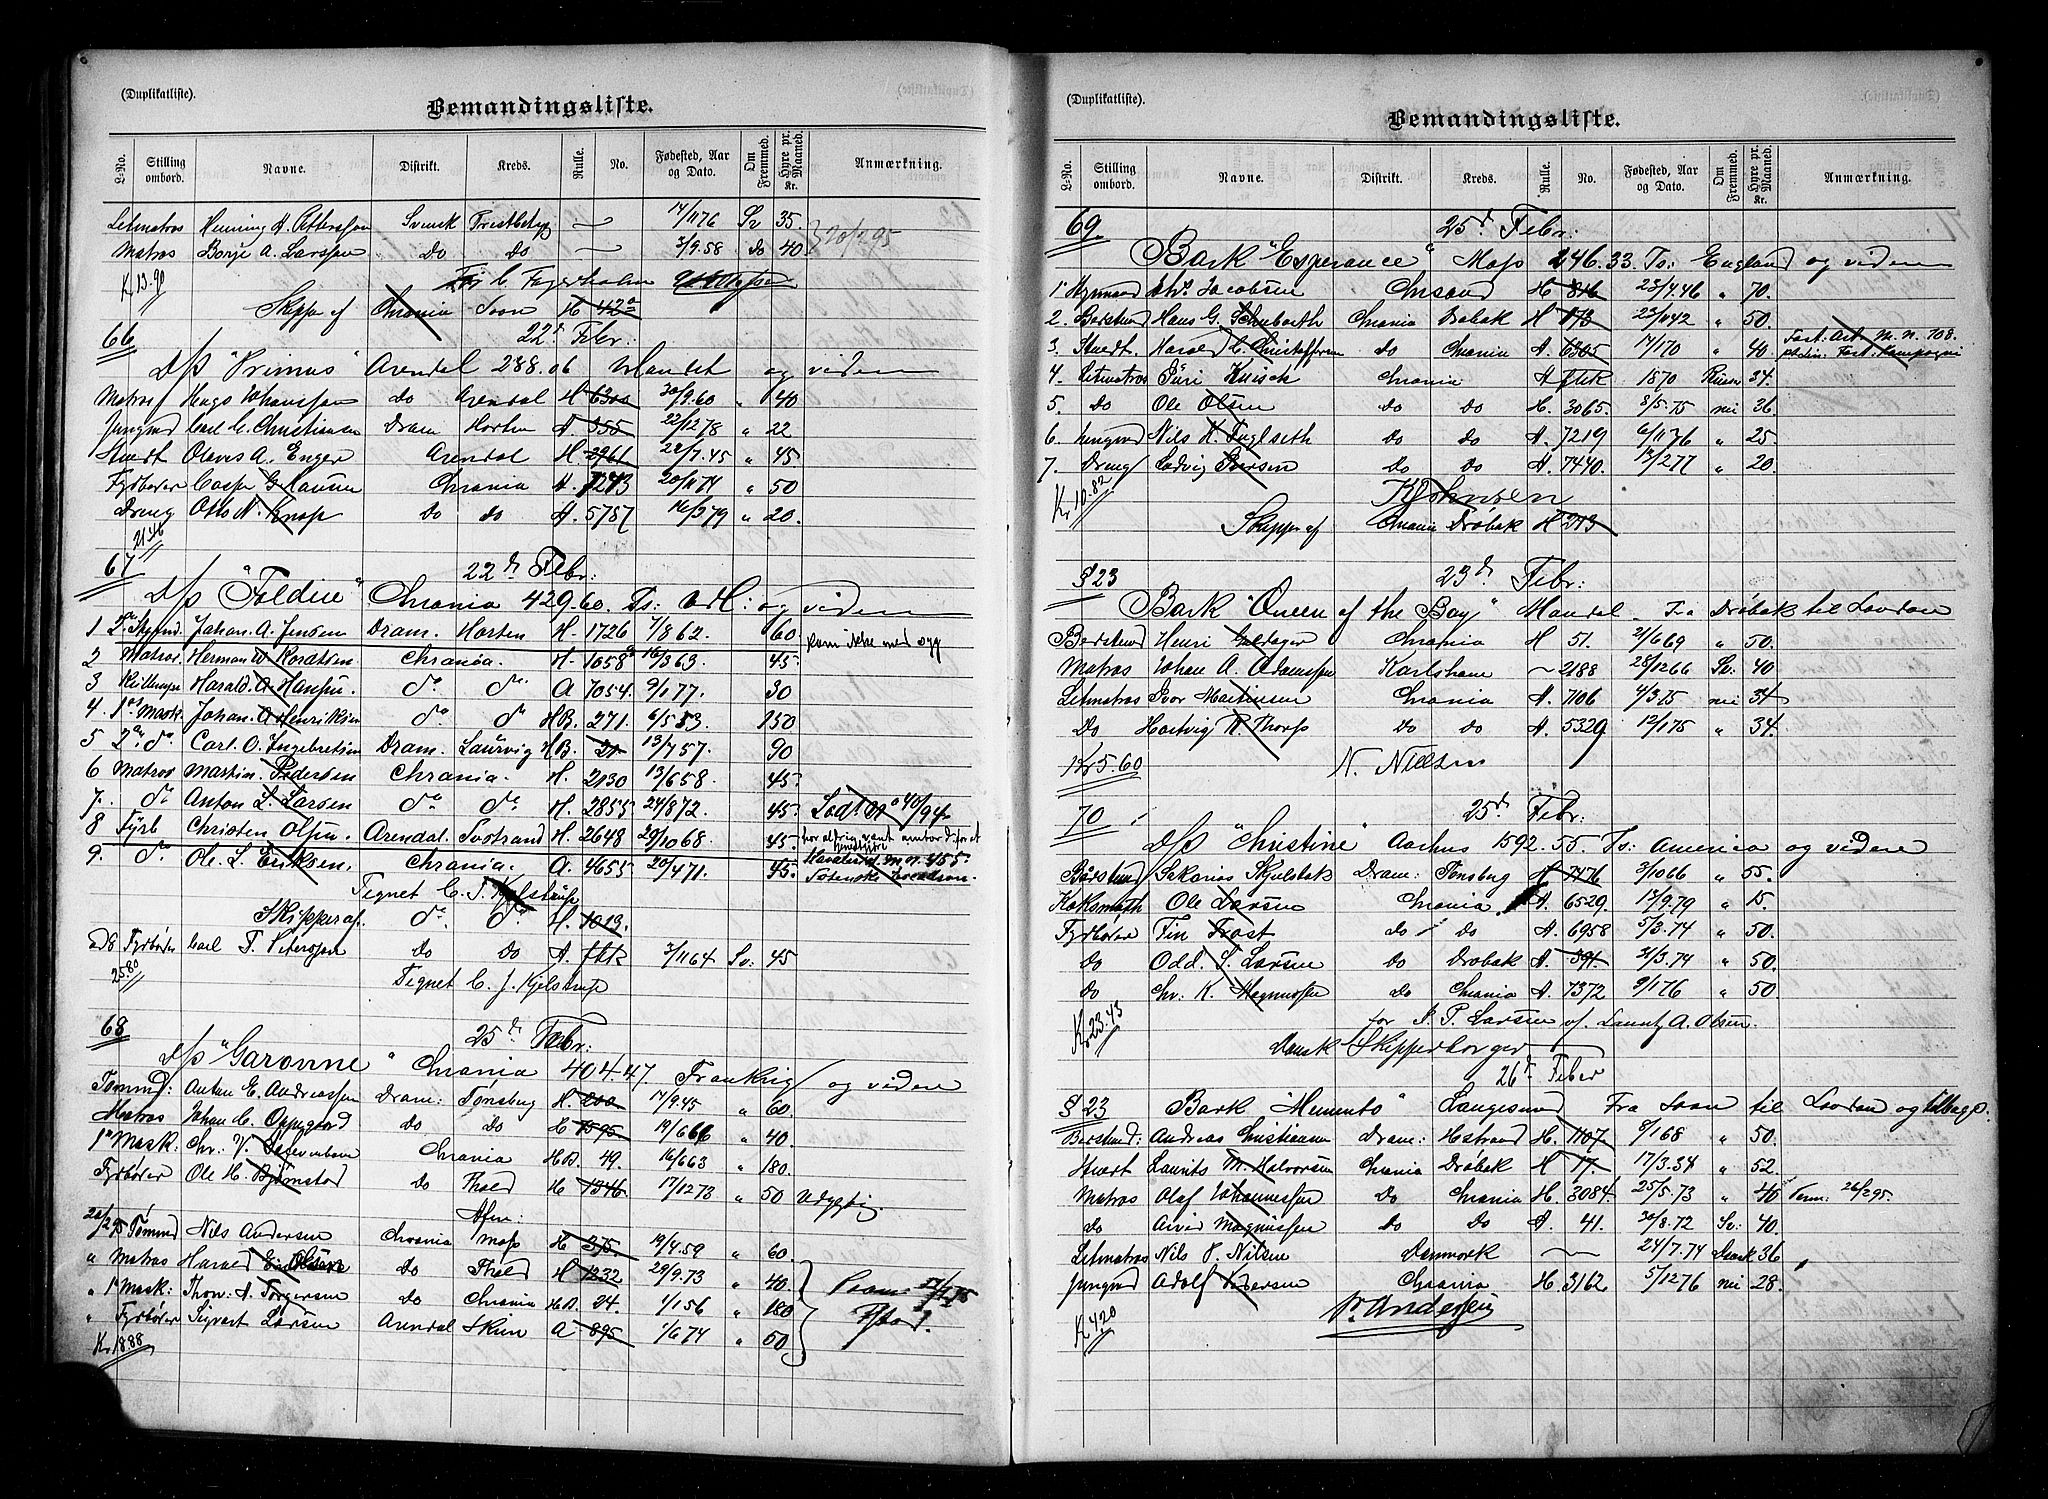 (Duplikatliste).
Bemandingsliste.
L-No. Stilling ombord. Navne. Distrikt. Kreds. Rulle. No. Fødested, Aar og Dato. Om Fremmed. Hyre pr. Maaned. Kr. Anmærkning.
Letmatros Henning A. Pettersson Svensk 14/11 76 Sv 35.
Matros Borje A. Larssen Do Do 3/9.58 do 40 20/2 95
Kr 13.90 C Fagerholm
Skipper af Chrania Soon H 42a
66 22d Febr:
D/S "Primus" Arendal 238.06 Udlandet og videre
Matros Hugo Johanssen do Arendal H 6300 30/9.60 " 40
Jungmd Carl C. Christiansen Dram Horten A. 355 22/12 78 " 22
Stuert Olavis A. Enger Arendal H. 2961 22/7.45 " 45
Fyrbøter Casper G. Hansen Chrania A. 7243 20/11 74 " 50
Dreng Otto N. Knap Do do A. 5787 16/3 79 " 20.
21.46
67 22d Febr:
D/S "Foldin" Chrania 429.60. Ts: Udl: og videre
1 2den Styrmd. Johan. A. Jensen Dram. Horten H. 1726 7/8 62. 60 kom ikke med syg
2 Matros Herman W. Kordtsen Chrania. H. 1058a 16/3 63. 45.
3 Harald. A. Hansen. do do A 7054. 9/1 77. 30
4 1ste Mask. Johan. A. Henriksen do do HB. 271. 6/5 53. 150
5 2den do Carl. O. Ingebretsen Dram. Laurvig HB. 21. 13/7 57. 90
6 Matros Martin. Pedersen Chrania. H. 2130 13/6 58. 45.
7. do Anton L. Larsen do do H. 2855 24/8 72. 45.
8 Fyrb Christen Olsen. Arendal. Tvetrand H. 2648 29/10 68. 45. har aldrig været ombord
9. do Ole. L. Eriksen. Chrania. A. 4655 20/4 71. 45.
Tegnet C. J. Kjelstrup
Skipper af. do do H. 1013
ad8 Fyrbøter Carl F. Petersson Do Do A. fttk 3/11 64 Sv: 45
25.80 Tegnet C. J. Kjelstrup
68 25de Febr:
D/S "Garonne" Chrania 404.47. Frankrig og videre
Tømmd: Anton E. Andreassen Dram: Tønsberg H. 200 17/9.45 " 60
Matros Johan C. Oppegaard Do Do H 1595 19/6 66 " 40.
1ste Mask: Chr. V. Chrania H.B. 49. 16/6 63 " 180.
Fyrbøter Ole H. Bjørnstad Do Thold H 1346 17/12 73 " 50 Udygtig
Afm:
22/2 95 Tømmd Nils Andersen Chrania Moss H 375. 19/4.59 " 60.
" Matros Harald E. Olsen Do Thold H 1232 29/9.73 " 40.
" 1ste Mask: Thom: A. Torgersen Do Chrania H.B. 24. 1/1 56 " 180
" Fyrbøter Sigvart Larsen Arendal Skien A 895 1/6 74 " 50
Kr 18.88
(Duplikatliste).
Bemandingsliste.
L-No. Stilling ombord. Navne. Distrikt. Kreds. Rulle. No. Fødested, Aar og Dato. Om Fremmed. Hyre pr. Maaned. Kr. Anmærkning.
69. 25d Febr:
Bark "Esperance" Moss 246.33. Ts: England og videre
1 Styrmand Chr. Jacobsen Chrsand H 816 23/4.46 " 70.
2. Baatsmd Hans G. Schubarth Chrania Drøbak H 173 23/11 42 " 50.
3. Stuert. Harald C. Christoffersen do Chrania A. 6305 14/1 70 " 40
4. Letmatros Jüri Chrania A fttk 1870 Russer 34.
5. Do Ole Olsen Do do H. 3065. 8/5.75 nei 36.
6. Jungmd Nils H. Fuglseth do do A. 7219 6/11 76 " 25.
7. Dreng Ludvig Iversen Do Do A. 7440. 12/2 77 " 20.
Kr. 10.82 K Johnsen
Skipper af Chrania Drøbak H 213
§ 23 23d Febr:
Bark "Queen of the Bay" Mandal. Fra Drøbak til London
Baatsmd Henri Chrania H 51. 21/6 69 " 50.
Matros Johan A. Adamsson Karlshavn 2188 28/12 66 Sv: 40
Letmatros Ivor Martinsen Chrania A. 7106 4/3 75 nei 34
Do Hartvig N. Thorp Do do A. 5329 12/1 75 " 34.
Kr 5.60 N. Nielsen
70 25d Febr.
D/S "Christine" Aarhus 1592.55. Ts: America og videre
Baatsmd Sakarias Skjelbak Dram: Tønsberg H 7476 3/10 66 " 55.
Koksmath Ole Larsen Chrania. A. 6529. 17/9.79 " 15.
Fyrbøter Finn Frost do do A. 6958 5/3.74 " 50.
Do Odd. S. Larsen Do Drøbak A. 391. 31/3.74 " 50.
Do Chr: K. Magnussen Do Chrania A. 7372 9/1 76 " 50.
Kr 23.43 for J. P. Larsen af. Lauritz A. Olsen.
Dansk Skipperborger
26d Febr
§ 23 Bark "Memento" Langesund Fra Soon til London og tilbage.
Baatsmd: Andreas Christiansen Dram: Hstrand H. 1107 8/1 68 " 50.
Stuert Laurits M. Halvorsen Chrania Drøbak H 17. 17/3.34 " 52.
Matros Olaf Johannessen Do Chrania H. 3084. 25/5.73 " 40 26/2 95.
Do Arvid Magnussen Do Do A. 41. 30/8.72 Sv: 40.
Letmatros Nils P. Nilsen Danmark 24/7.74 Dansk 36
Jungmd Adolf Pedersen Chrania H. 3162 5/12 76 nei 28.
Kr 4.20 P. Andersen